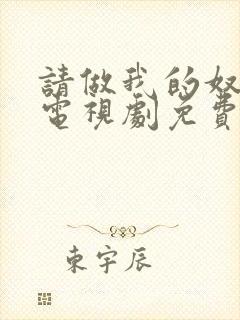 請做我的奴
電視劇免費
東宇辰